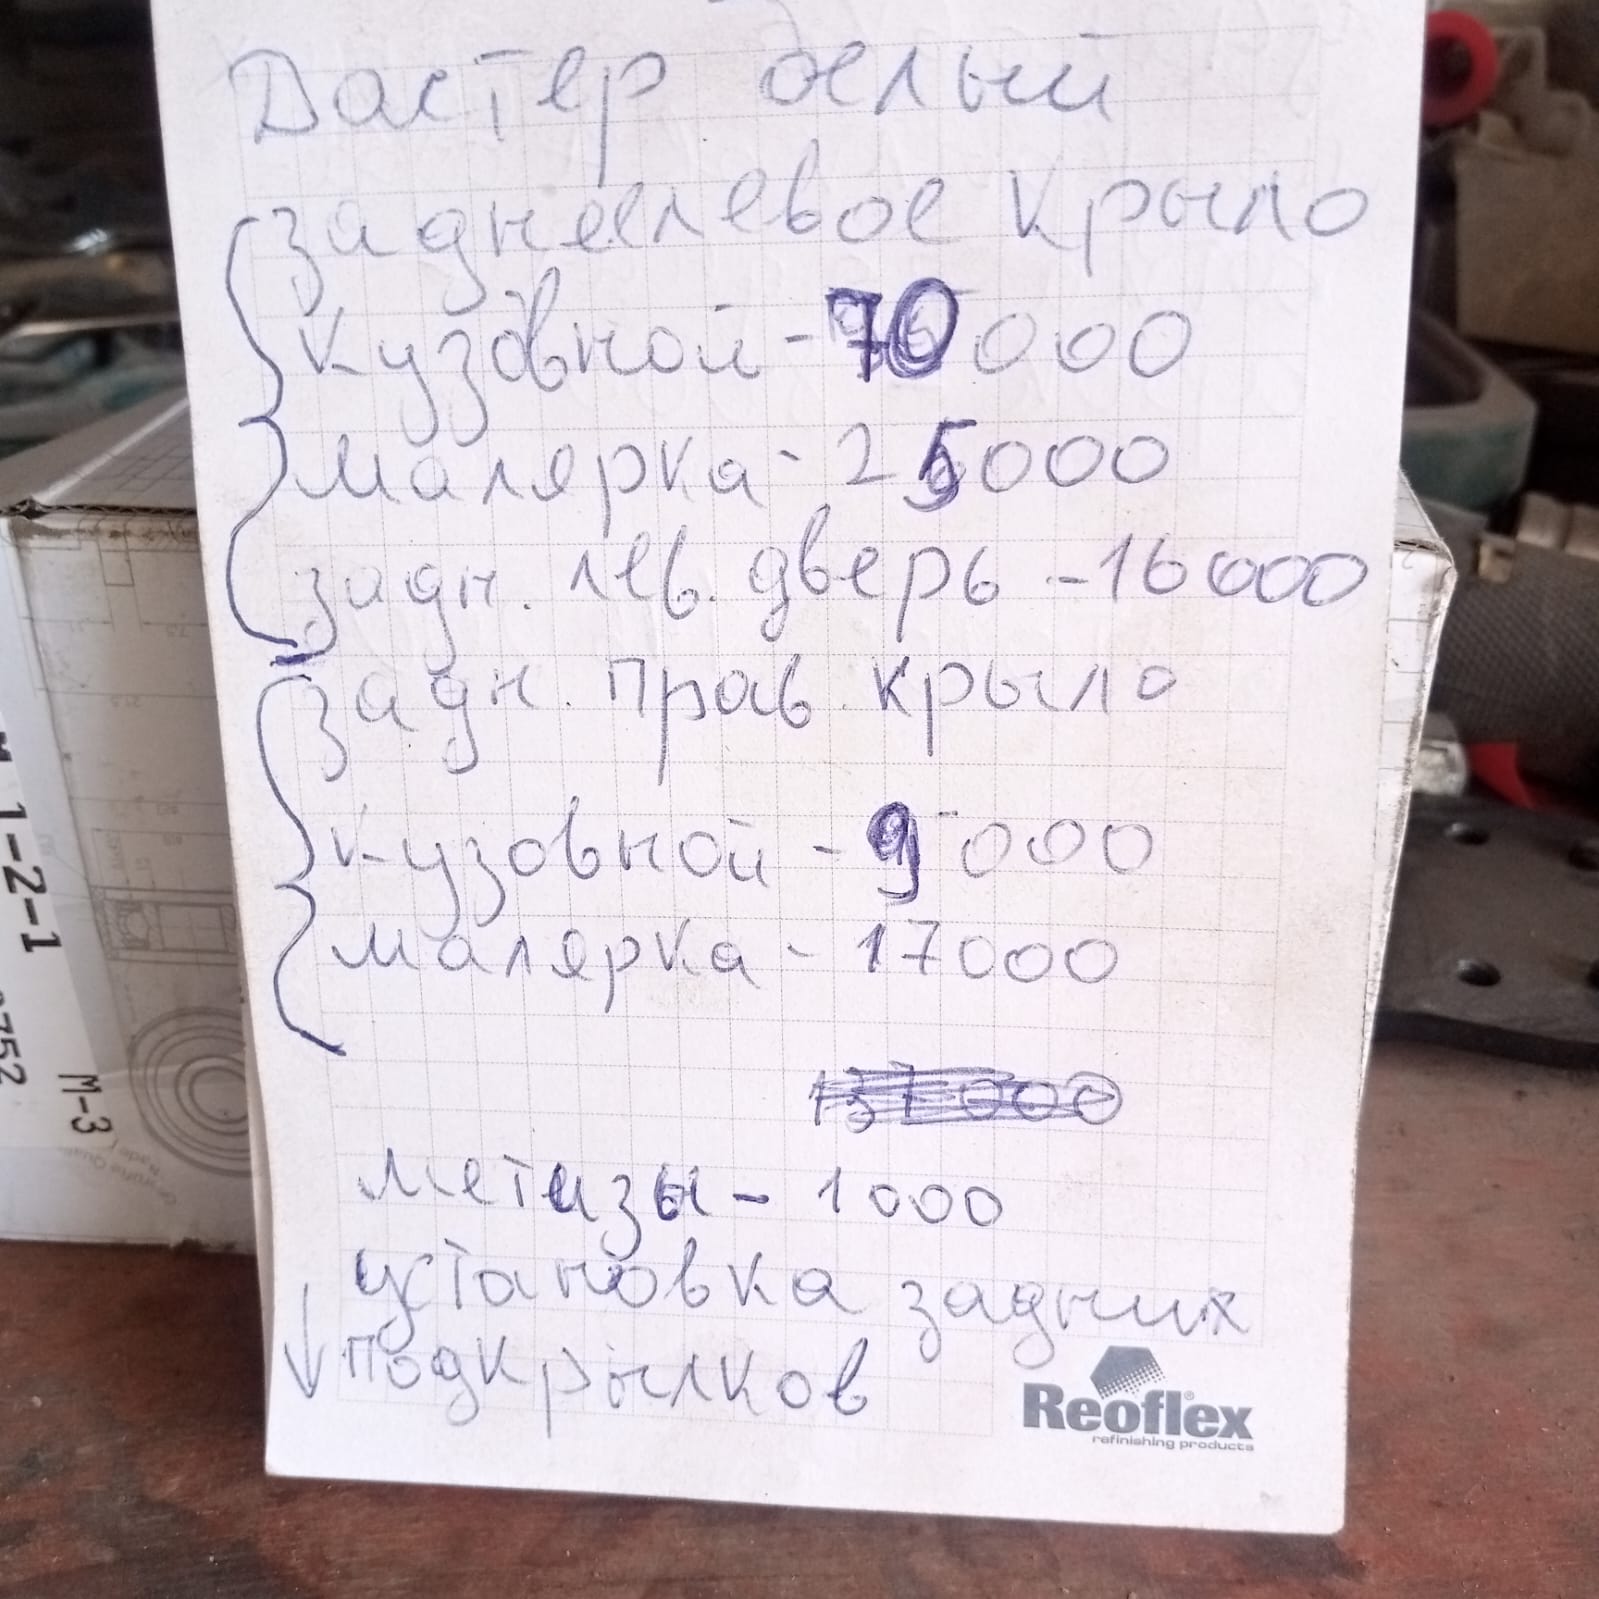 Дастер белый
заднеелевое крыло
кузовной - 70 000
малярка - 25000
задн. лев. дверь - 16000
задн. прав. крыло
кузовной - 9 000
малярка - 17000
137000
метизы - 1000
установка задних
подкрылков
Reoflex
refinishing products
1-2-1
M-3